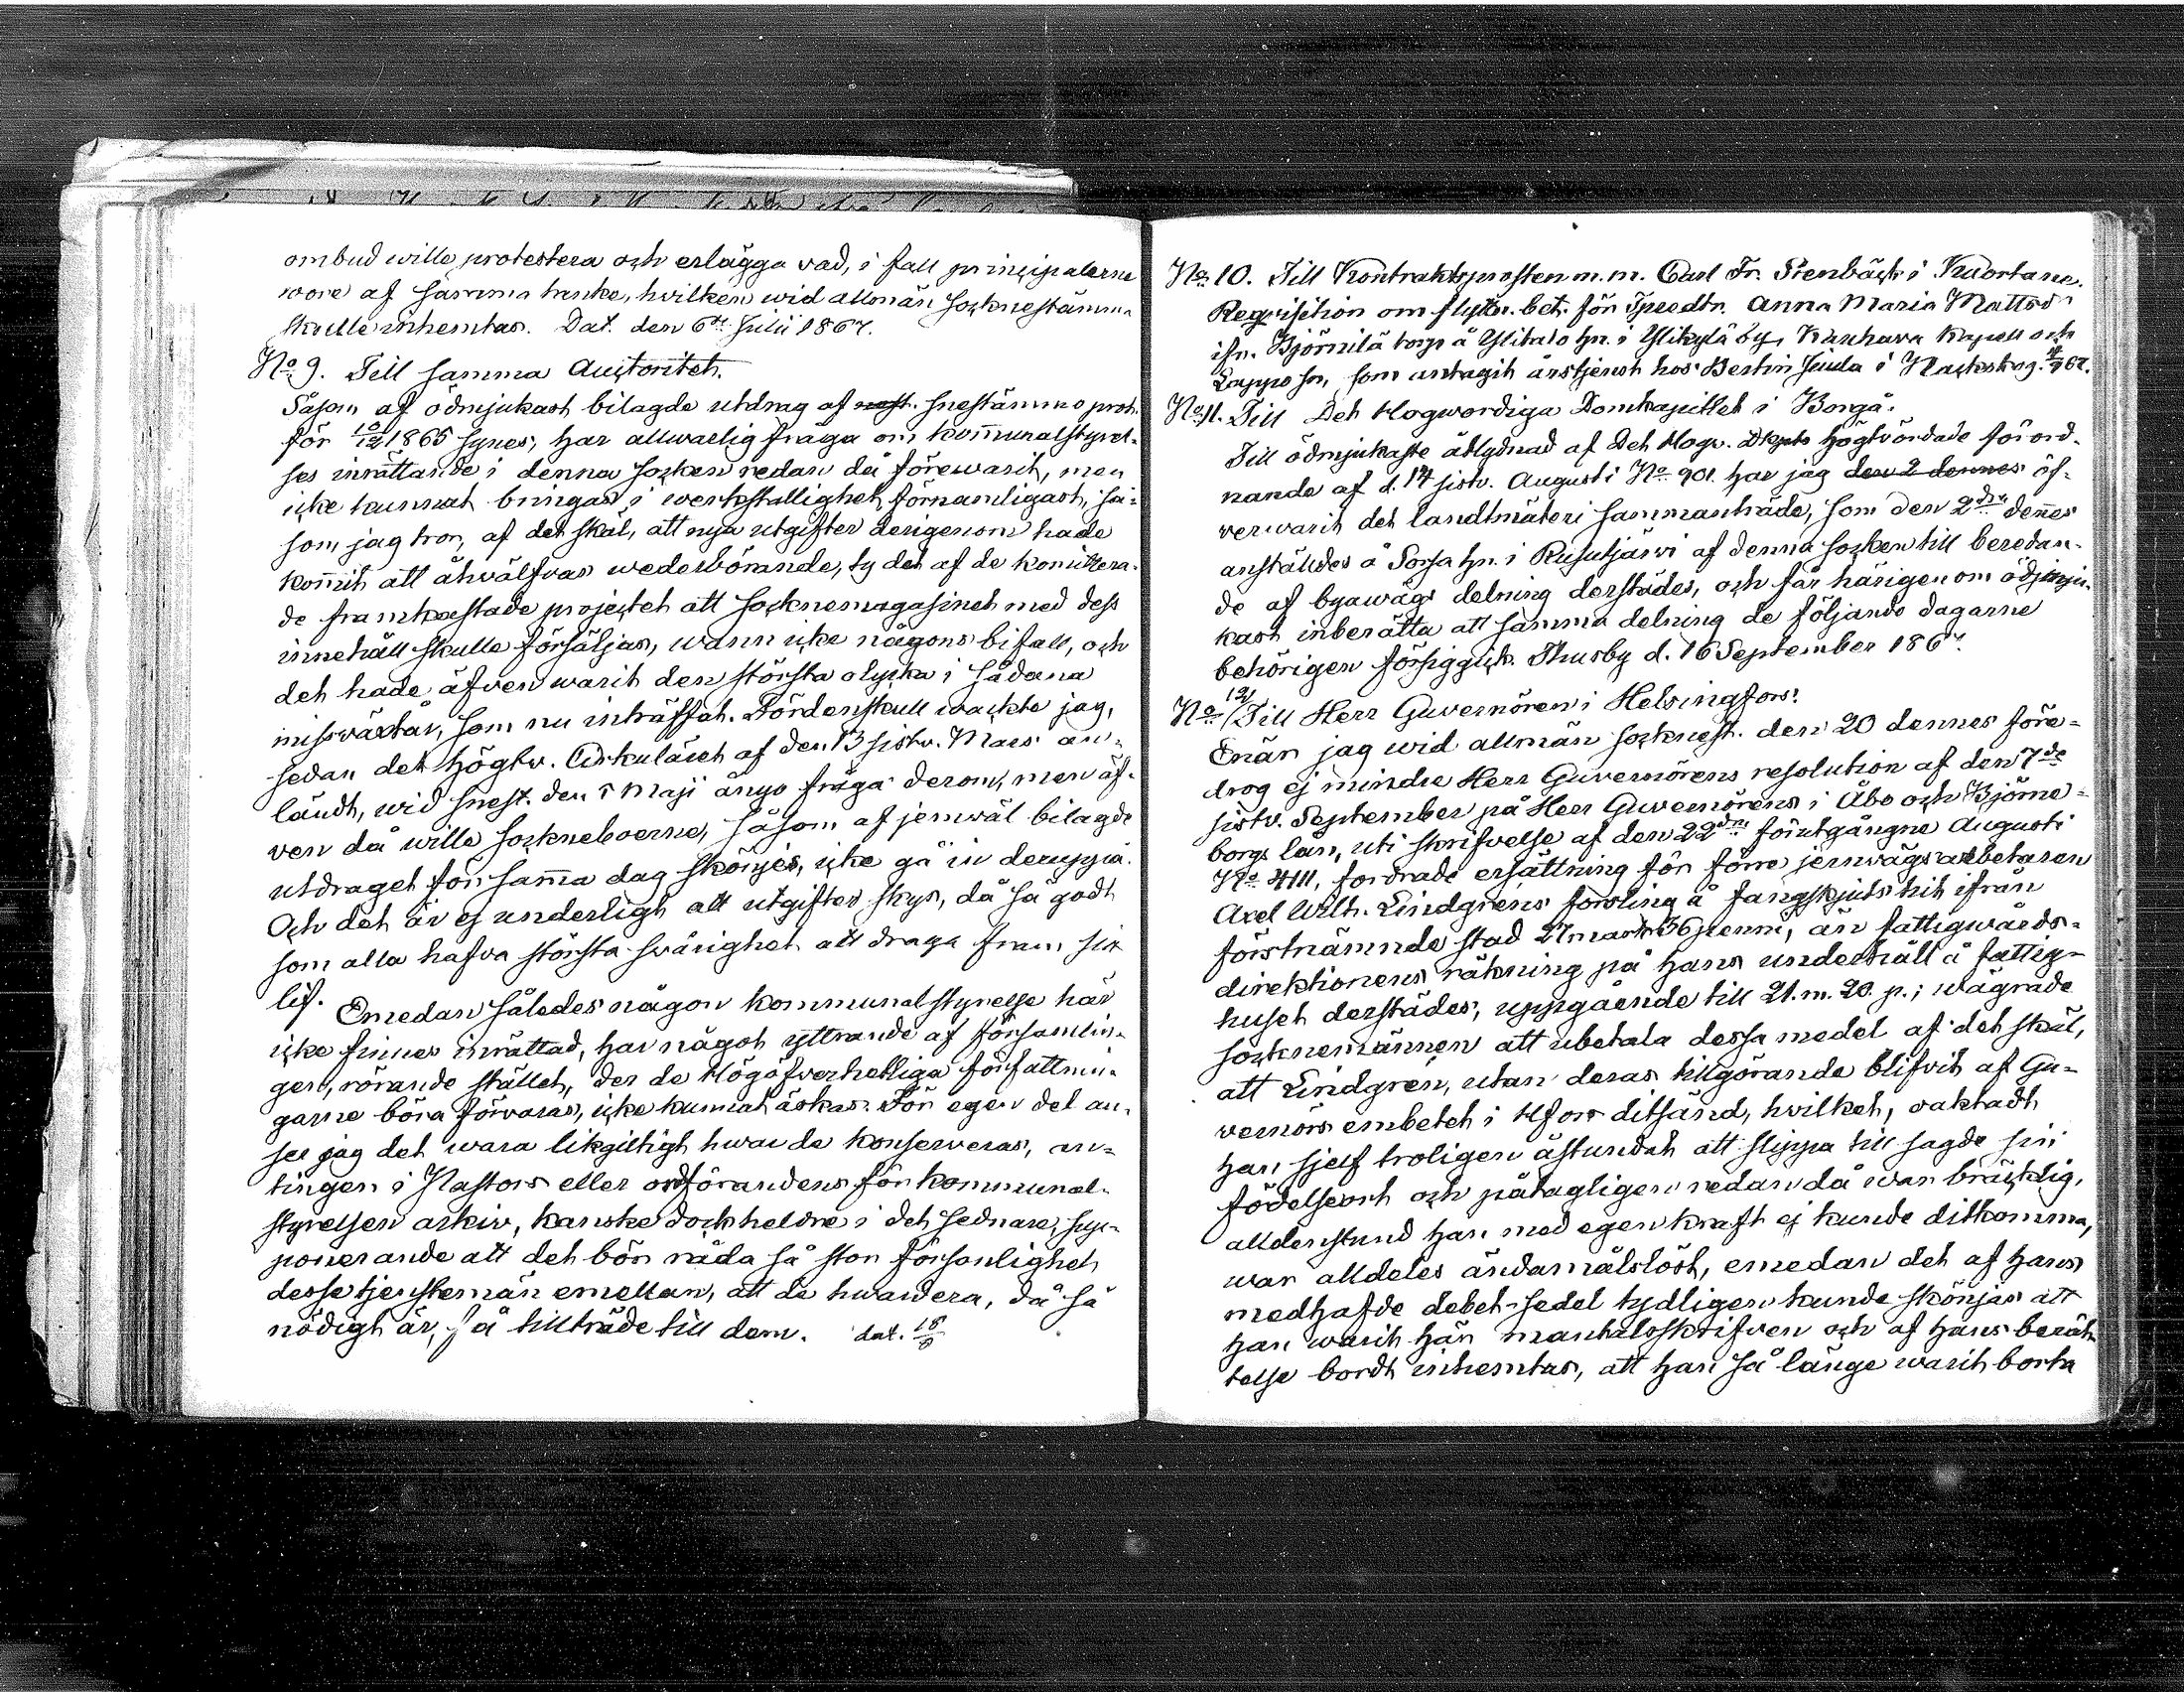 ombud wille protestera och erlägga vad, i fall principalerne
wore af samma tanke, hvilken wid allmän socknestämma
skulle inhemtas. Dat. den 6te Julii 1867.
No 9. Till samma Auctoritet.
Såsom af ödmjukast bilagde utdrag af snestämmo prot.
för 10/12 1865 synes, har allwarlig fråga om kommunalstyrel-
ses inrättande i denna socken redan då förewarit, men
icke kunnat bringas i werkställighet, förnämligast, så-
som jag tror, af det skäl, att nya utgifter derigenom hade
kommit att åhvälfvas wederbörande, ty det af de komittera-
de framkastade projectet att socknemagasinet med dess
innehåll skulle försäljas, wann icke någons bifall, och
det hade äfven warit den största olycka i sådana
missväxtår, som nu inträffat. Fördenskull wäckte jag,
sedan det högtv. Cirkuläret af den 13 sistv. Mars an-
ländt, wid snest. den 5 Maji ånyo fråga derom, men äf-
ven då wille sockneboerne, såsom af jemwäl bilagde
utdraget för samma dag skönjes, icke gå in deruppå.
Och det är ej underligt att utgifter skys, då så godt
som alla hafva största swårighet att draga fram sit
lif. Emedan således någon kommunalstyrelse här
icke finnes inrättad, har något yttrande af församlin-
gen, rörande stället, der de Högöfverhetliga författnin-
garne böra förvaras, icke kunnat äskas. För egen del an-
ser jag det wara likgiltigt hwar de konserveras, an-
tingen i Pastors eller ordförandens för kommunal-
styrelsen arkiv, kanske dock heldre i det sednare, sup-
ponerande att det bör råda så stor försonlighet
desse tjenstemän emellan, att de hwardera, då så
nödigt är, få tillträde till dem. dat. 18/8
No 10. Till Kontraktsprosten m.m. Carl Fr. Stenbäck i Kuortane.
Requisition om flyttn. bet. för Speedtr. Anna Maria Mattsdr
ifr. Björnilä torp å Ylitalo hn. i Ylikylä by, Kauhava kapell och
Lappo sn, som antagit årstjenst hos Bertin Juula i Nackskog.
No 11. Till Det Högwördiga Domkapitlet i Borgå.
Till ödmjukaste åtlydnad af Det Högv. Dkpts högtvördade förord-
nande af d. 14 sistv. Augusti No 901. har jag den 2 dennes öf-
verwarit det landtmäteri sammanträde, som den 2dra dennes
anställdes å Sorsa hn. i Rusutjärwi af denna socken till beredan-
de af byawägs delning derstädes, och får härigenom ödmju-
kast inberätta att samma delning de följande dagarne
behörigen försiggick. Thusby d. 16 September 1867.
No 12/ Till Herr Guvernören i Helsingfors.
Enär jag wid allmän socknest. den 20 dennes före-
drog ej mindre Herr Guvernörens resolution af den 7de
sistv. September på Herr Guvernörens i Åbo och Björne-
borgs län, uti skrifvelse af den 22dra förutgångne Augusti
No 4111, fordrade ersättning för förre jernvägsarbetaren
Axel Wilh. Lindgréns forsling å fångskjuts hit ifrån
förstnämnde stad 27 mark 36 penni, än fattigwårds-
direktionens räkning på hans underhåll å fattig-
huset derstädes, uppgående till 21. m. 20. p.; wägrade
socknemännen att utbetala dessa medel af det skäl,
att Lindgrén, utan deras tillgörande blifvit af Gu-
vernörs embetet i Hfors ditsänd, hvilket, oaktadt
han sjelf troligen åstundat att slippa till sagde sin
födelseort och påtagligen redan då war bräcklig,
alldenstund han med egen kraft ej kunde ditkomma,
war alldeles ändamålslöst, emedan det af hans
medhafde debet-sedel tydligen kunde skönjas att
han warit här mantalsskrifven och af hans berät-
telse bordt inhemtas, att han så länge warit borta